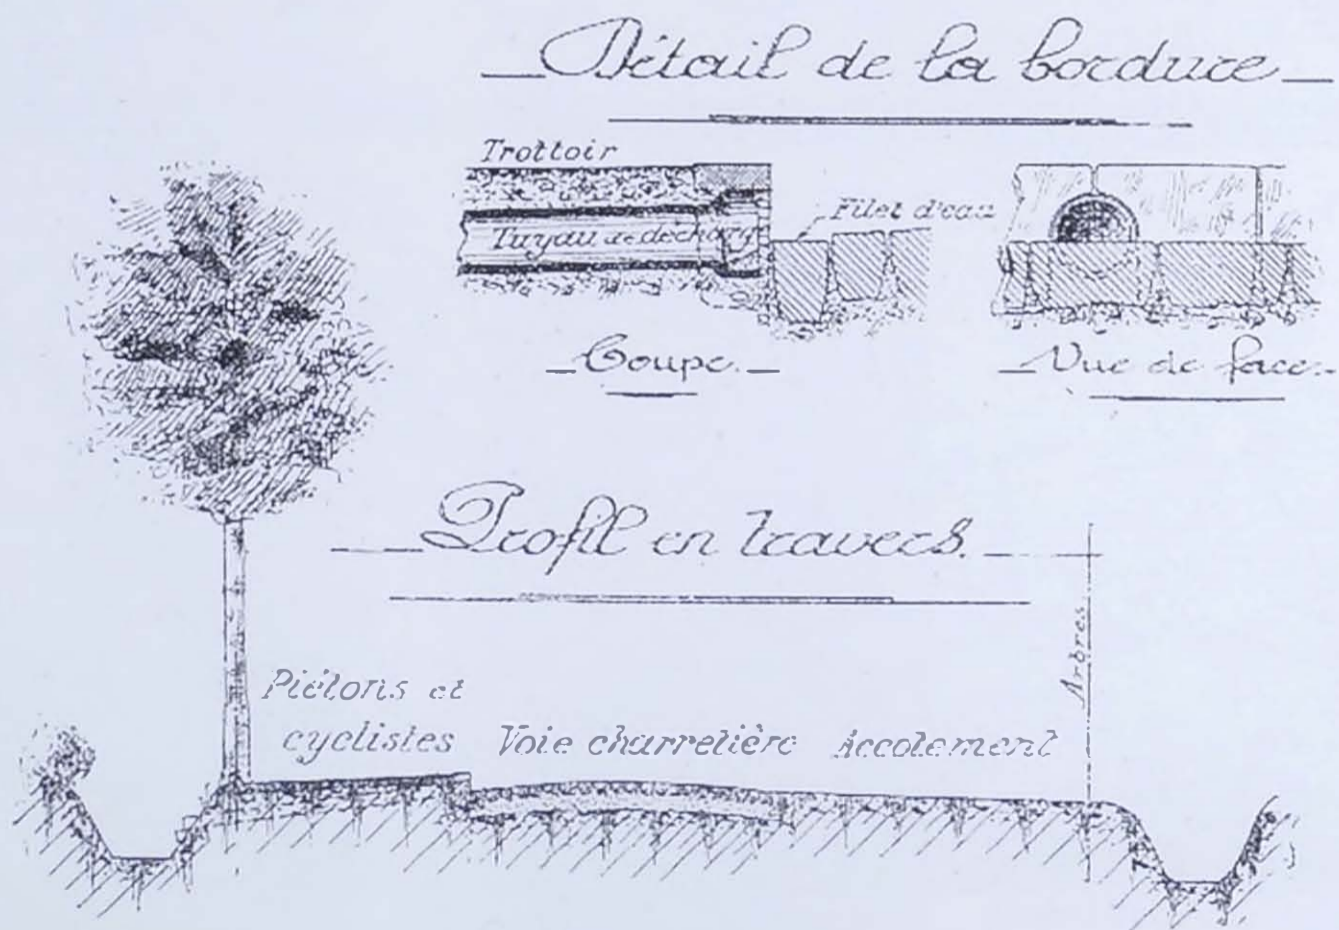 Détail de la bordure
Trottoir
Filet d'eau
Tuyau de décharge
Coupe.
Vue de face.
Profil en travers.
Arbres
Piétons et
cyclistes
Voie charretière
Accotement